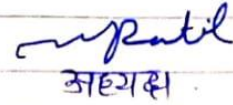 Patil
अध्यक्ष